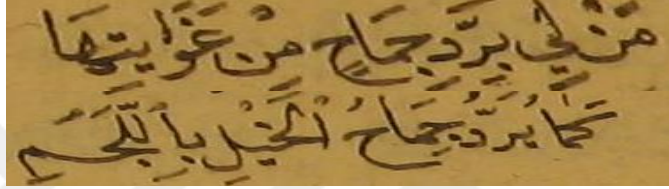 مَنْ لِي بِرَدِّ جِمَاحٍ مِنْ غَوَايَتِهَا
كَمَا يُرَدُّ جِمَاحُ الْخَيْلِ بِاللُّجَمِ